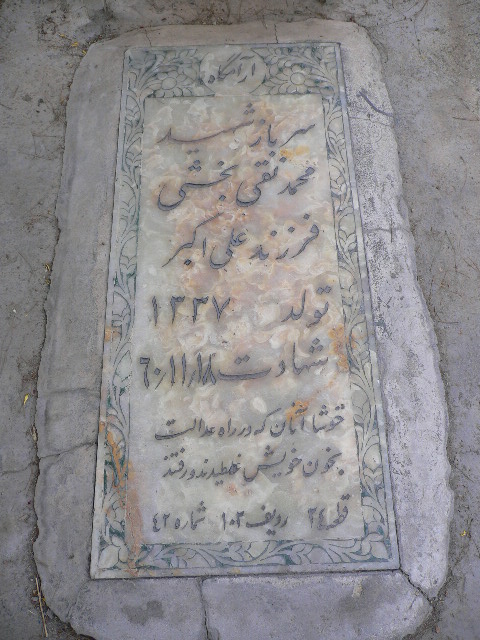 آرامگاه
سرباز شهید
محمد نقی بخشی
فرزند علی اکبر
تولد ۱۳۳۷
شهادت ۶۰/۱۱/۱۸
خوشا آنان که در راه عدالت
بخون خویش غلطیدند و رفتند
قطعه ۲۴ ردیف ۱۰۲ شماره ۴۲